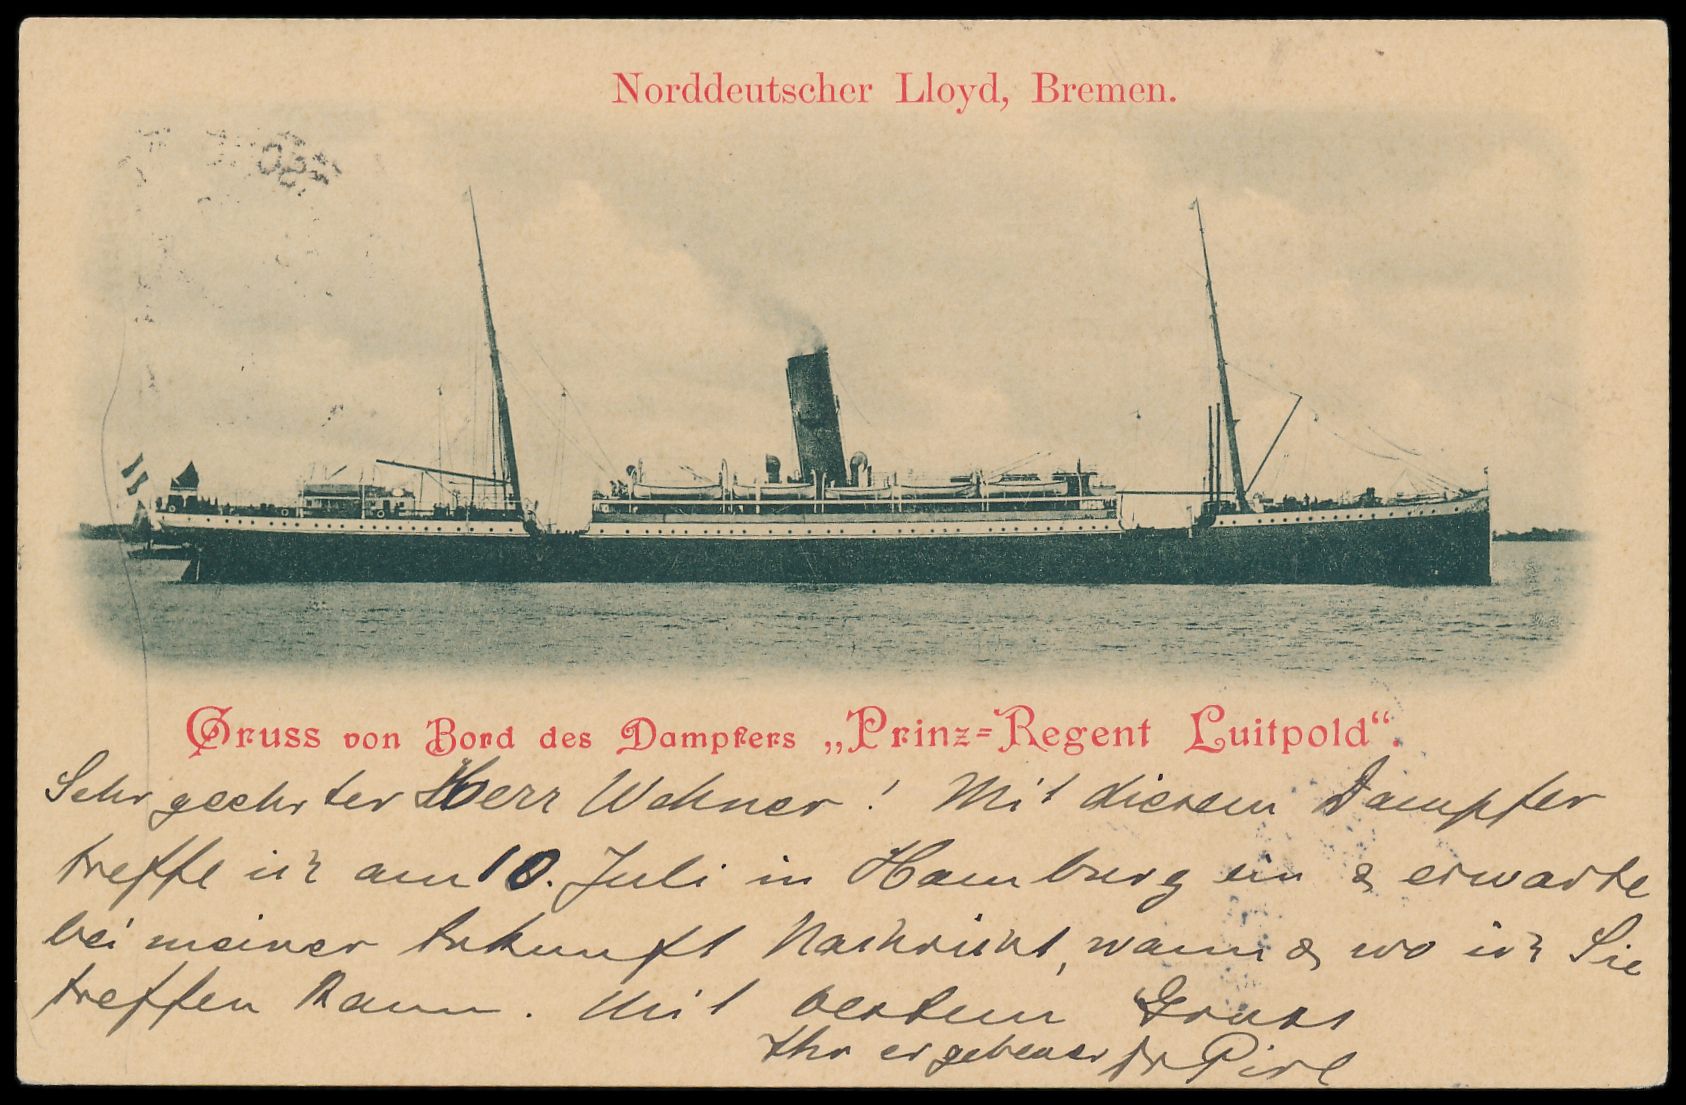 Norddeutscher Lloyd, Bremen.
Gruss von Bord des Dampfers „Prinz=Regent Luitpold“.
Sehr geehrter Herr Wehner! Mit diesem Dampfer
treffe ich am 10. Juli in Hamburg ein & erwarte
bei meiner Ankunft Nachricht, wann & wo ich Sie
treffen kann. Mit bestem Gruss
Ihr ergebener